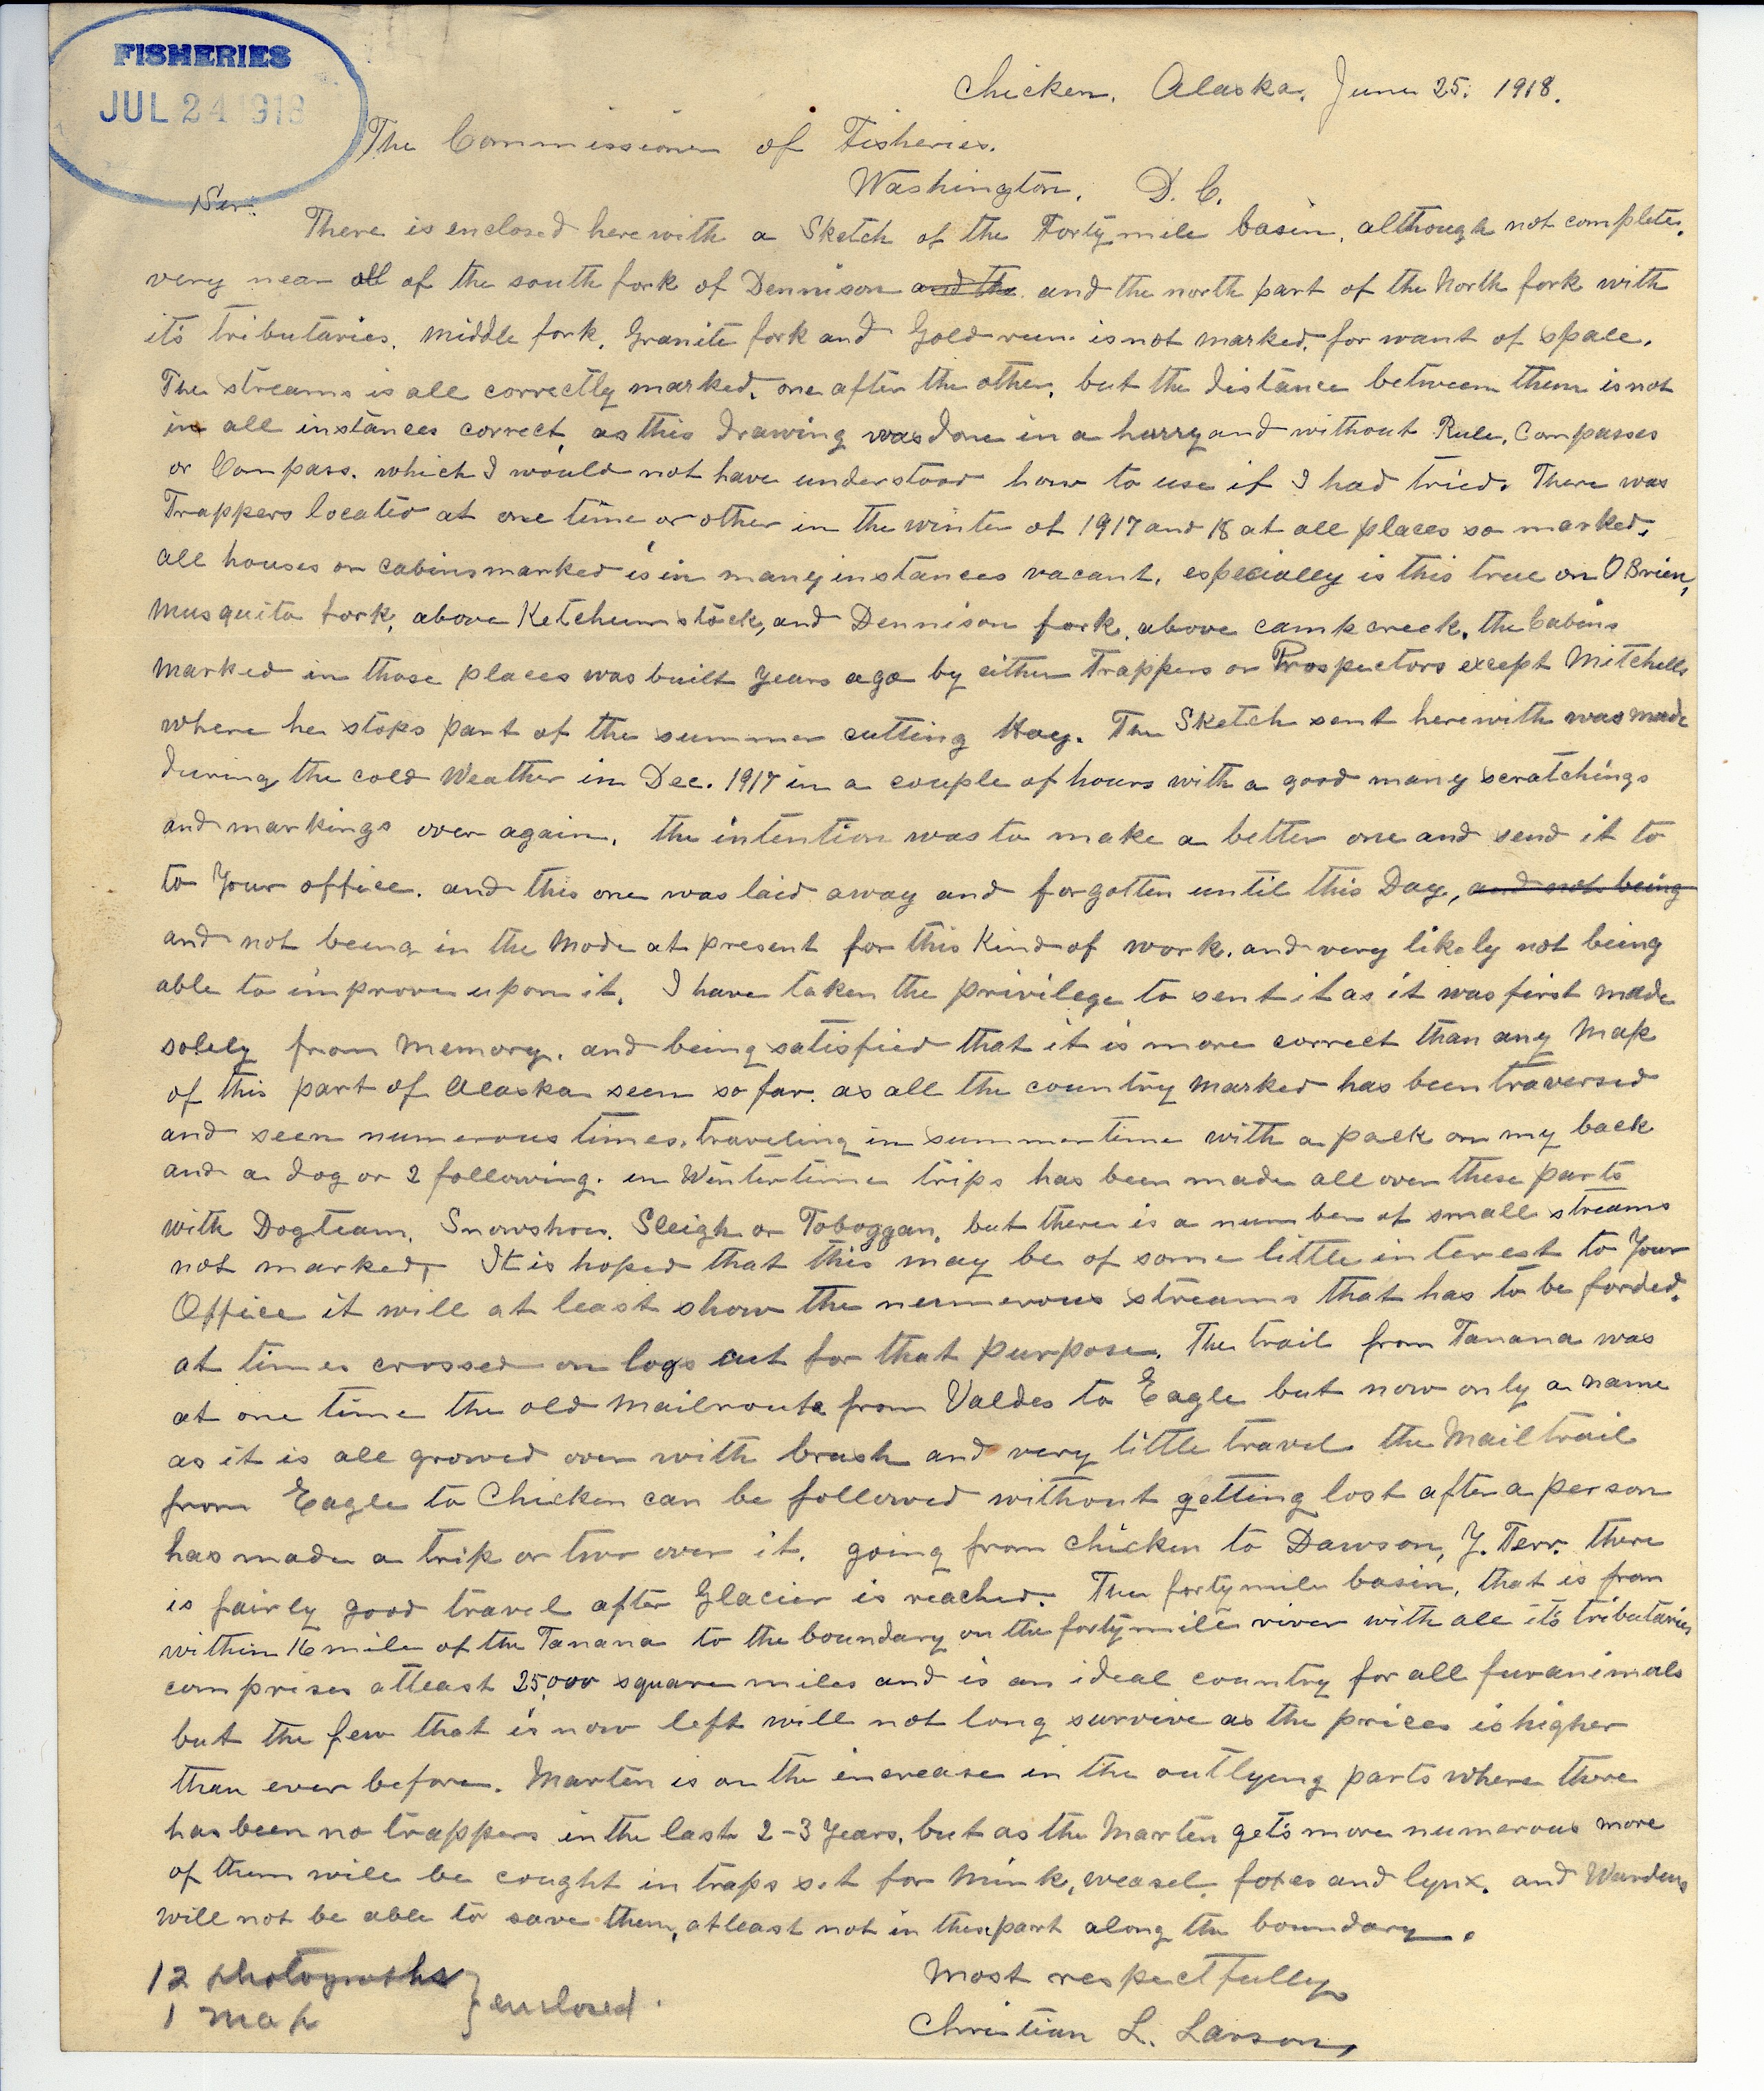 FISHERIES
JUL 24 1918
Chicken, Alaska, June 25. 1918.
The Commissioner of Fisheries.
Washington, D. C.
Sir.
There is enclosed herewith a Sketch of the Fortymile basin, although not complete.
very near all of the south fork of Dennison and the and the north part of the North fork with
it's tributaries, middle fork, Granite fork and Gold run is not marked, for want of space.
The streams is all correctly marked, one after the other, but the distance between them is not
in all instances correct, as this drawing was done in a hurry and without Rule, Compasses
or Compass, which I would not have understood how to use if I had tried. There was
Trappers located at one time or other in the winter of 1917 and 18 at all places so marked.
all houses or cabins marked is in many instances vacant, especially is this true on OBrien,
Musquito fork, above Ketchumstock, and Dennison fork, above camp creek, the Cabins
marked in those places was built years ago by either Trappers or Prospectors except Mitchells
where he stops part of the summer cutting Hay. The Sketch sent herewith was made
during the cold Weather in Dec. 1917 in a couple of hours with a good many scratchings
and markings over again, the intention was to make a better one and send it to
to Your office, and this one was laid away and forgotten until this Day, and not being
and not being in the Mode at present for this Kind of work, and very likely not being
able to improve upon it, I have taken the privilege to sent it as it was first made
solely from Memory, and being satisfied that it is more correct than any Map
of this part of Alaska seen so far, as all the country marked has been traversed
and seen numerous times, traveling in summertime with a pack on my back
and a dog or 2 following, in Wintertime trips has been made all over these parts
with Dogteam, Snowshoe, Sleigh or Toboggan, but there is a number of small streams
not marked, It is hoped that this may be of some little interest to Your
Office it will at least show the numerous streams that has to be forded,
at times crossed on logs cut for that purpose. The trail from Tanana was
at one time the old Mailroute from Valdes to Eagle but now only a name
as it is all growed over with brush and very little travel. the Mail trail
from Eagle to Chicken can be followed without getting lost after a person
has made a trip or two over it. going from Chicken to Dawson, Y. Terr. there
is fairly good travel after Glacier is reached. The fortymile basin, that is from
within 16 mile of the Tanana to the boundary on the fortymile river with all it's tributaries
comprises atleast 25,000 square miles and is an ideal country for all furanimals
but the few that is now left will not long survive as the prices is higher
than ever before. Marten is on the increase in the outlying parts where there
has been no trappers in the last 2-3 Years, but as the Marten gets more numerous more
of them will be cought in traps set for Mink, weasel, foxes and lynx, and Wardens
will not be able to save them, atleast not in this part along the boundary.
Most respectfully,
Christian L. Larson,
12 photographs
1 map
} enclosed.